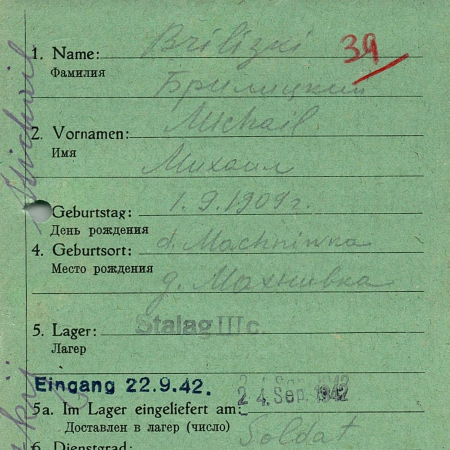 1. Name: Brilizki 39
Фамилия
Брилицкий
2. Vornamen: Michail
Имя
Михаил
Geburtstag: 1.9.1909 г.
День рождения
4. Geburtsort: d. Machniwka
Место рождения
д. Махнивка
5. Lager: Stalag III c.
Лагер
Eingang 22.9.42. 24. Sep. 1942
5a. Im Lager eingeliefert am:
Доставлен в лагер (число)
6. Dienstgrad: Soldat
Michail